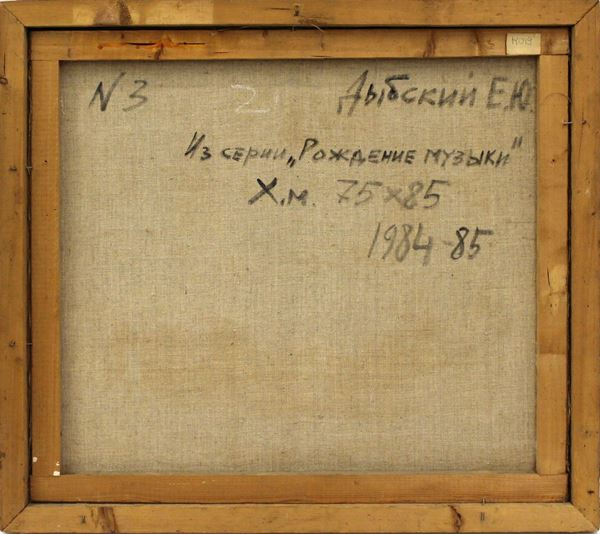 N 3 2 Дыбский Е.Ю.
Из серии „Рождение музыки"
Х.м. 75х85
1984-85